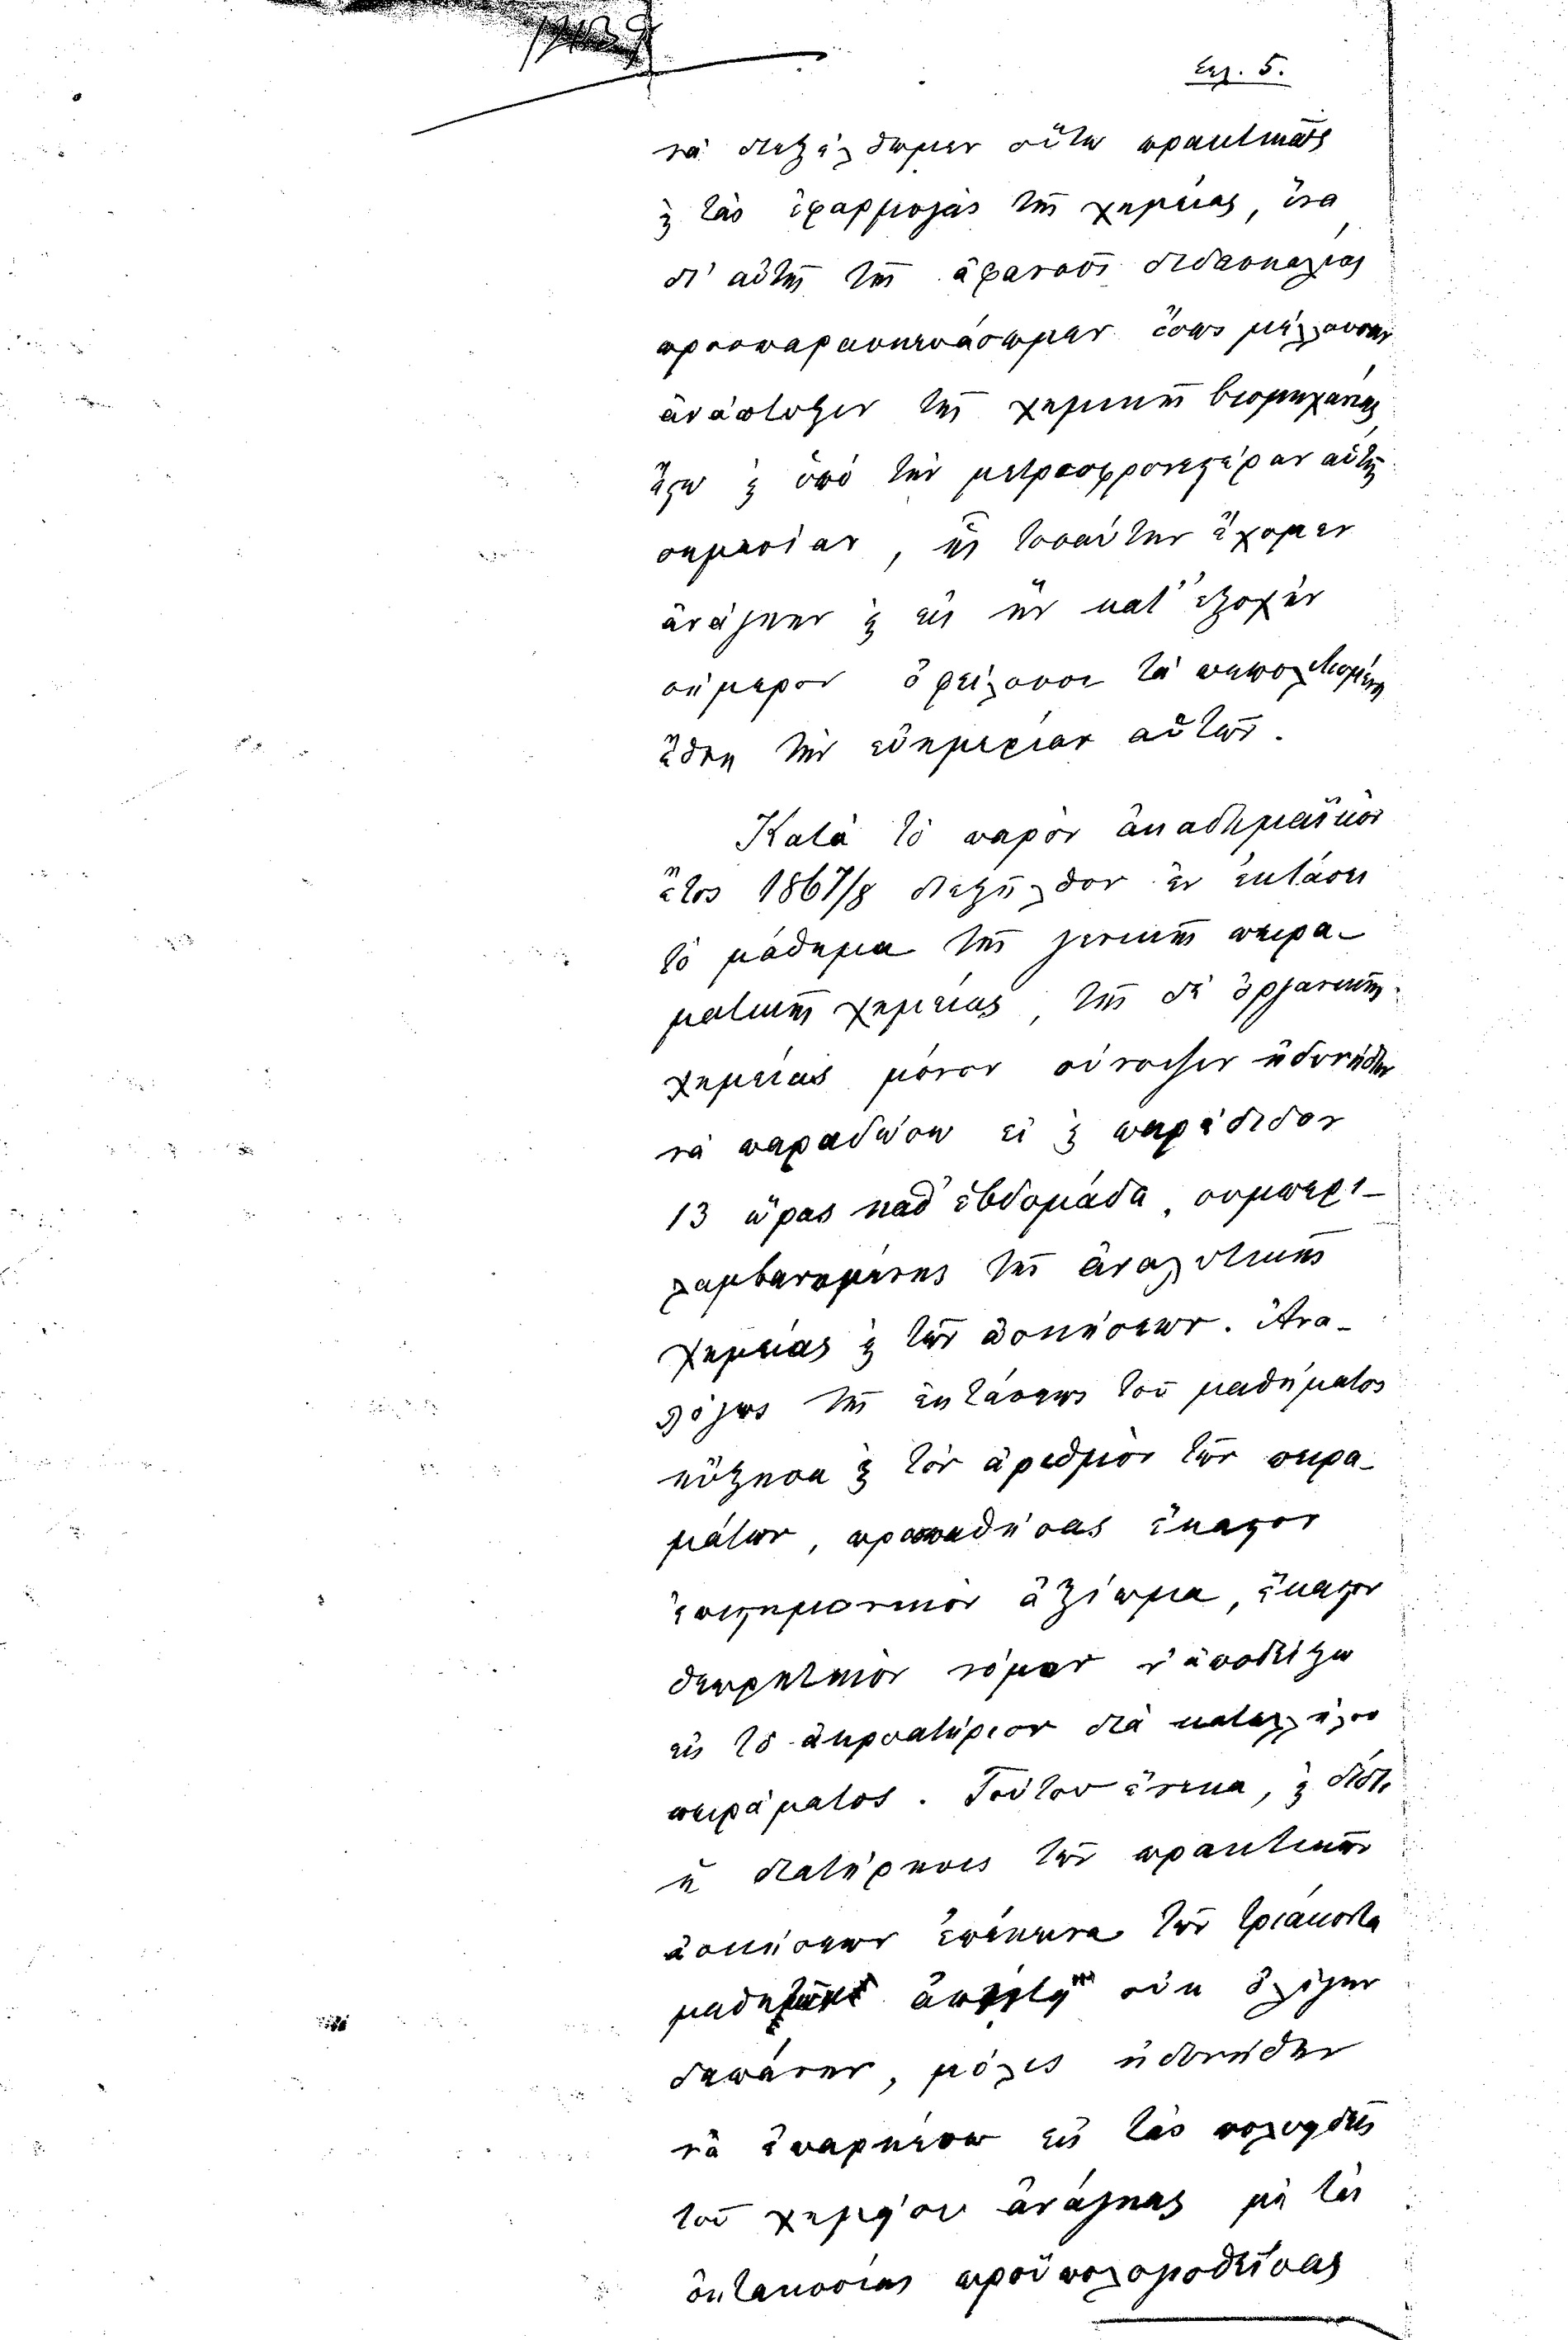 Σελ. 5.
νὰ διεξέλθωμεν οὕτω πρακτικῶς
ϗ τὰς ἐφαρμογὰς τῆς χημείας, ἵνα
δι' αὐτῆς τῆς ἀφανοῦς διδασκαλίας
προσπαρασκευάσωμεν ἴσως μέλλουσαν
ἀνάπτυξιν τῆς χημικῆς βιομηχανίας,
ἔστω ϗ ὑπὸ τὴν μετριοφρονεστέραν αὐτῆς
σημασίαν, ἧς τοσαύτην ἔχομεν
ἀνάγκην ϗ εἰς ἣν κατ' ἐξοχὴν
σήμερον ὀφείλουσι τὰ πεπολιτισμένα
ἔθνη τὴν εὐημερίαν αὐτῶν.
Κατὰ τὸ παρὸν ἀκαδημαϊκὸν
ἔτος 1867/8 διεξῆλθον ἐν ἐκτάσει
τὸ μάθημα τῆς γενικῆς πειρα-
ματικῆς χημείας, τῆς δὲ ὀργανικῆς
χημείας μόνον σύνοψιν ἠδυνήθην
νὰ παραδώσω εἰ ϗ παρέδιδον
13 ὥρας καθ' ἑβδομάδα, συμπερι-
λαμβανομένης τῆς ἀναλυτικῆς
χημείας ϗ τῶν ἀσκήσεων. Ἀνα-
λόγως τῆς ἐκτάσεως τοῦ μαθήματος
ηὔξησα ϗ τὸν ἀριθμὸν τῶν πειρα-
μάτων, προσπαθήσας ἕκαστον
ἐπιστημονικὸν ἀξίωμα, ἕκαστον
θεωρητικὸν νόμον ν' ἀποδείξω
εἰς τὸ ἀκροατήριον διὰ καταλλήλου
πειράματος. Τούτου ἕνεκα, ϗ διότι
ἡ διατήρησις τῶν πρακτικῶν
ἀσκήσεων ἐπέκεινα τῶν τριάκοντα
μαθητῶν ἀπῄτησεν οὐκ ὀλίγην
δαπάνην, μόλις ἠδυνήθην
νὰ ἐπαρκέσω εἰς τὰς πολυειδεῖς
τοῦ χημείου ἀνάγκας μὲ τὰς
ὀκτακοσίας προϋπολογισθείσας